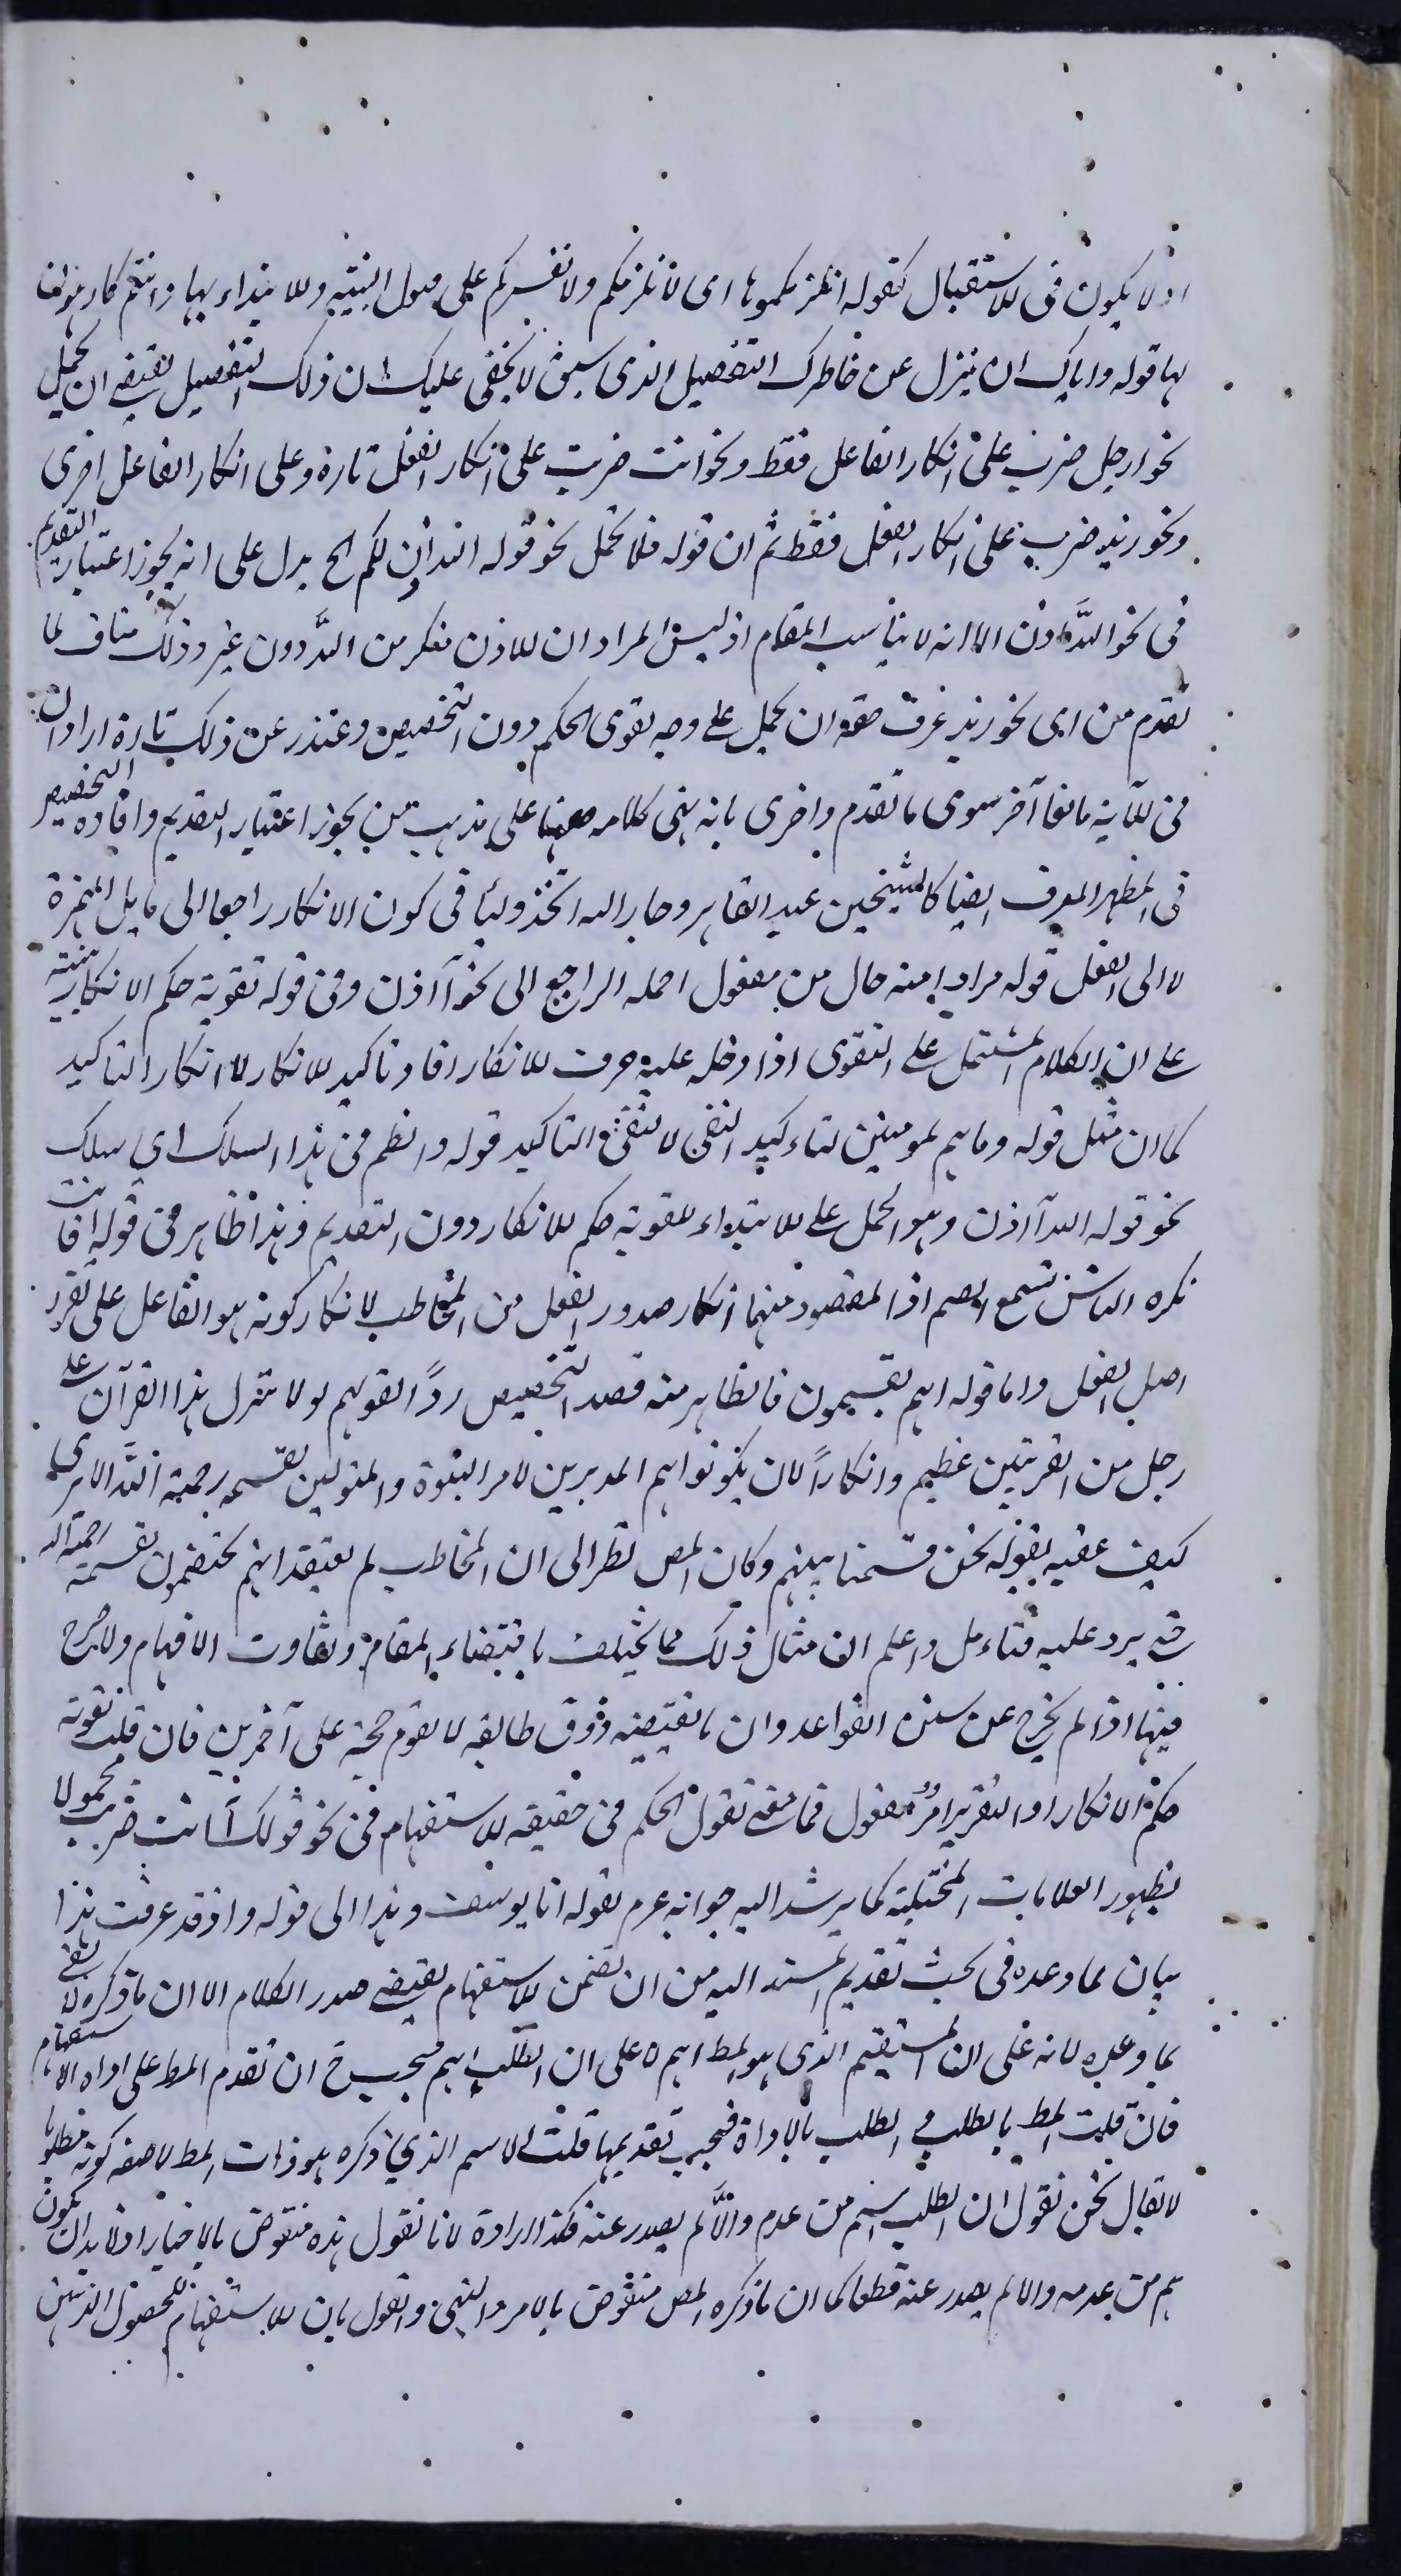 او لا یکون فی الاستقبال کقوله انلزمکموها ای لا نلزمکم ولا نقسرکم علی قبول البینة والاهتداء بها وانتم کارهون
لها قوله وایاک ان یزل عن خاطرک التفصیل الذی سبق لا یخفی علیک ان ذلک التفصیل یقتضی ان یحمل
نحو ارجل ضرب علی انکار الفاعل فقط ونحو اانت ضربت علی انکار الفعل تارة وعلی انکار الفاعل اخری
ونحو زید ضرب علی انکار الفعل فقط ثم ان قوله فلا تحمل نحو قوله الله اذن لکم الخ یدل علی انه یجوز اعتبار التقدیم
فی نحو الله اذن الا انه لا یناسب المقام اذ لیس المراد ان الاذن منکر من الله دون غیره وذلک مناف لما
تقدم من ان نحو زید عرف حقه ان یحمل علی وجه تقوی الحکم دون التخصیص واعتذر عن ذلک تارة اراد ان
فی الآیة مانعا آخر سوی ما تقدم واخری بانه بنی کلامه ههنا علی مذهب من یجوز اعتبار التقدیم وافاده التخصیص
فی المظهر المعرف ایضا کالشیخین عبد القاهر وجار الله اتخذ ولیا فی کون الانکار راجعا الی ما یلی الهمزة
لا الی الفعل قوله مرادا منه حال من مفعول احمله الراجع الی نحو آاذن وفی قوله تقویة حکم الانکار تنبیه
علی ان الکلام المشتمل علی التقوی اذا دخله علیه حرف الانکار افاد تاکید الانکار لا انکار التاکید
کما ان مثل قوله وما هم بمومنین لتاءکید النفی لا لنفی التاکید قوله وانظم فی هذا السلک ای سلک
نحو قوله الله آاذن وهو الحمل علی الابتداء لتقویة حکم الانکار دون التقدیم وهذا ظاهر فی قوله افانت
تکره الناس تسمع الصم اذ المقصود منهما انکار صدور الفعل من المخاطب لا انکار کونه هو الفاعل علی تقرر
اصل الفعل واما قوله اهم یقسمون فالظاهر منه قصد التخصیص رداً لقولهم لولا نزل هذا القرآن علی
رجل من القریتین عظیم وانکاراً لان یکونوا هم المدبرین لامر النبوة والمتولین لقسمه رحمة الله الا یری
کیف عقبه بقوله نحن قسمنا بینهم وکان المص نظر الی ان المخاطب لم یعتقد انهم مختصون بقسمة رحمة الله
حتی یرد علیه فتاءمل واعلم ان امثال ذلک مما یختلف باقتضاء المقام وتفاوت الافهام ولا حرج
فیها اذا لم یخرج عن سنن القواعد وان ما یقتضیه ذوق طایفه لا یقوم حجة علی آخرین فان قلت تقویة
حکم الانکار او التقریر امر معقول فما معنی تقوی الحکم فی حقیقه الاستفهام فی نحو قولک آانت ضربت محمولا
بظهور العلامات المختلیة کما یرشد الیه جوابه عرم بقوله انا یوسف وهذا الی قوله واذ قد عرفت هذا
بیان لما وعده فی بحث تقدیم المسند الیه من ان تضمن الاستفهام یقتضی صدر الکلام الا ان ما ذکره لا یفی
بما وعده لانه علی ان المستفهم الذی هو المط اهم لا علی ان الطلب اهم فیجب ح ان تقدم المط علی اداه الاستفهام
فان قلت المط بالطلب والطلب بالاداة فیجب تقدیمها قلت الاسم الذی ذکره هو ذات المط لا صفه کونه مطلوبا
لا یقال نحن نقول ان الطلب اهم من عدم والا لم یصدر عنه فکذا الاداة لانا نقول هذه منقوض بالاخبار اذ لا بد ان یکون
اهم من عدمه والا لم یصدر عنه قطعا کما ان ما ذکره المص منقوض بالامر والنهی والقول بان الاستفهام للحصول الذهن